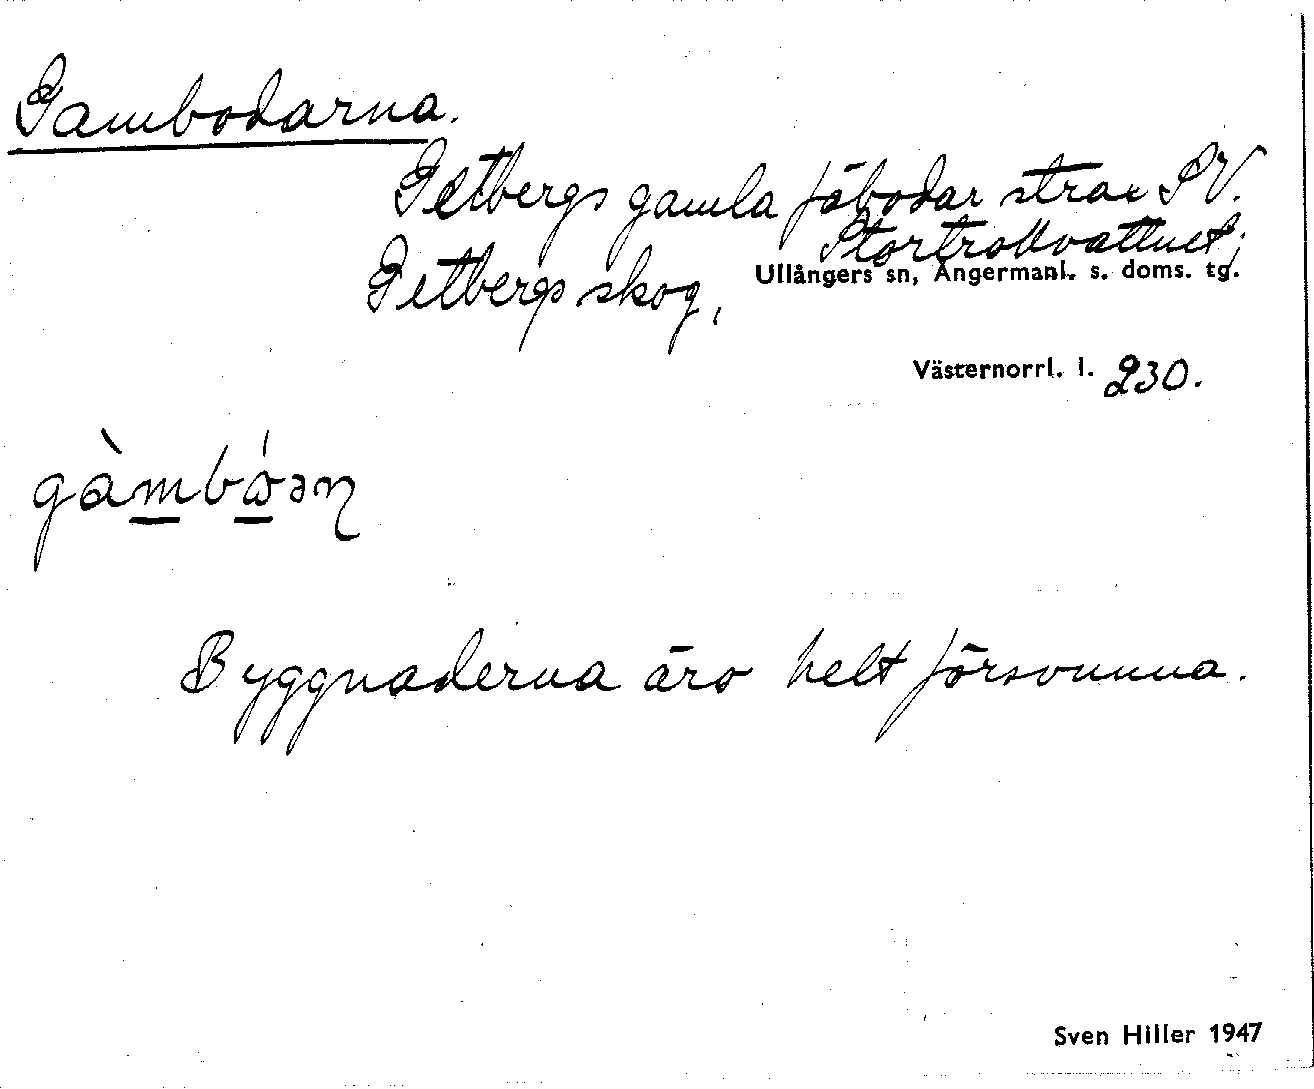 Gambodarna.
Getbergs gamla fäbodar strax SV.
Stortrollvattnet;
Getbergs skog,
Ullångers sn, Ångermanl. s. doms. tg.
Västernorrl. l. 230.
gàmbó̀ən
Byggnaderna äro helt försvunna.
Sven Hiller 1947